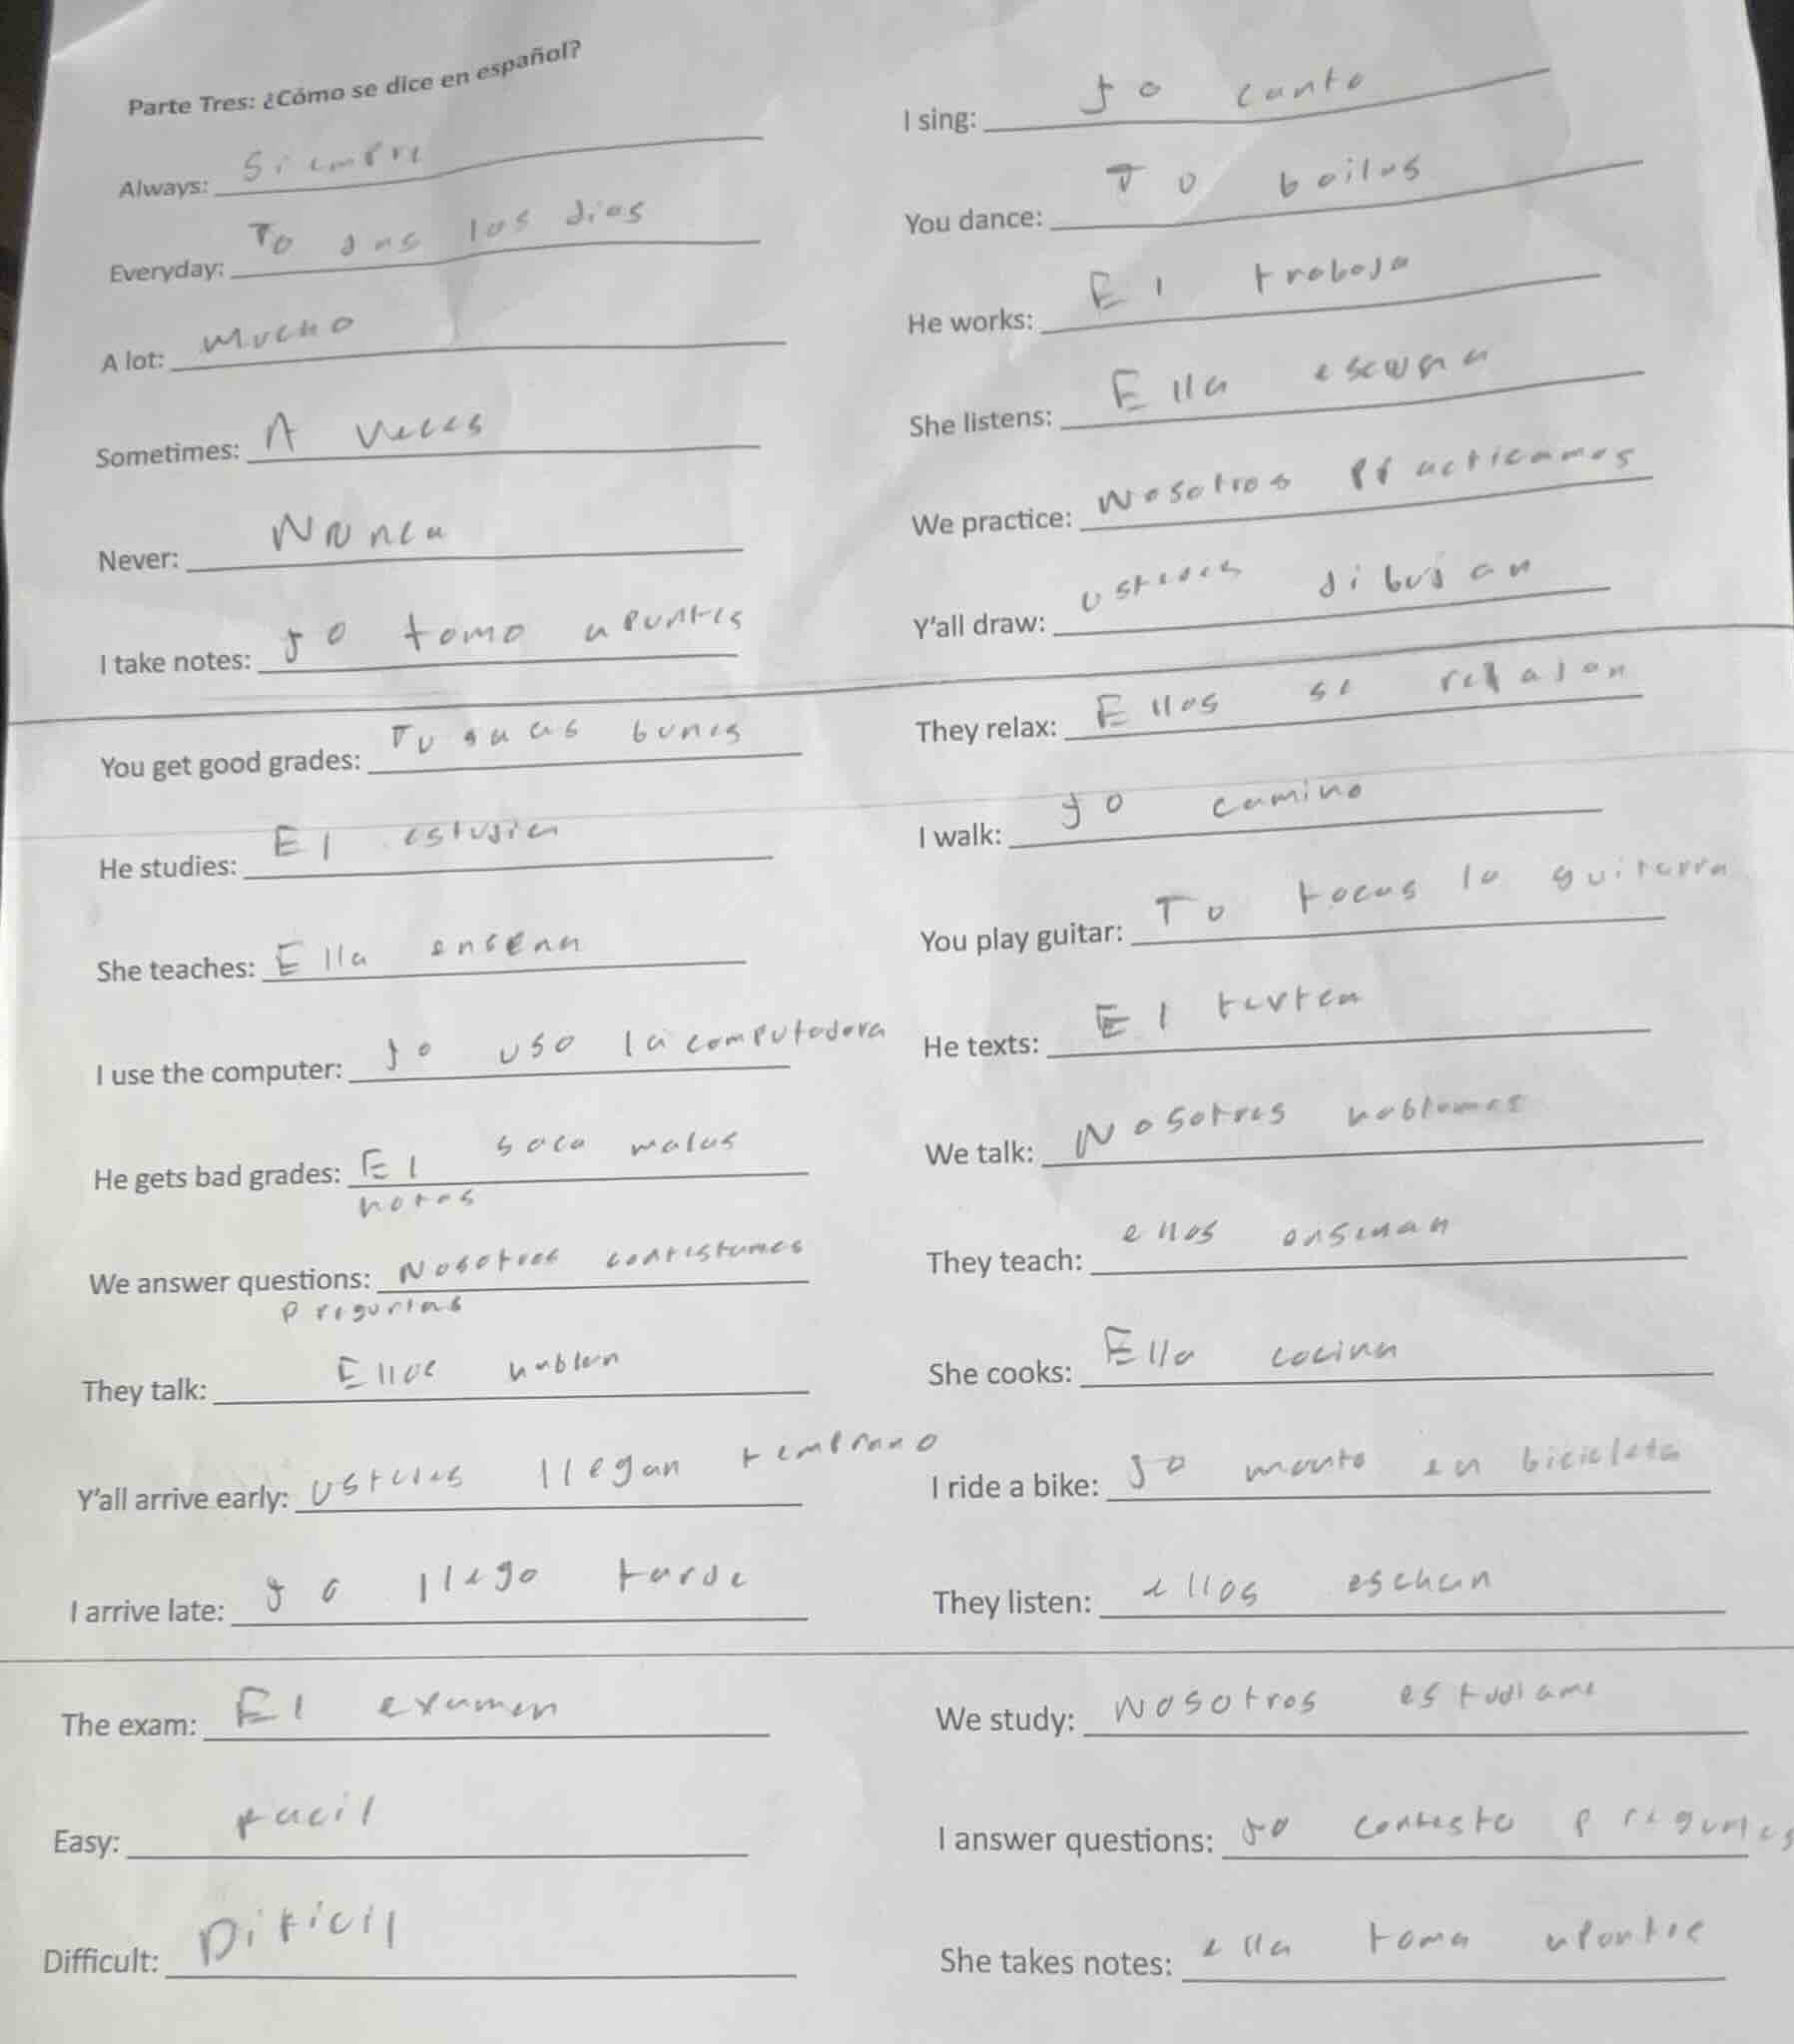 Parte Tres: ¿Cómo se dice en español?
Always: Siempre
Everyday: To dos los dias
A lot: mucho
Sometimes: A veces
Never: Nunca
I take notes: yo tomo apuntes
You get good grades: Tu sacas bunes
He studies: El estudia
She teaches: Ella ensena
I use the computer: yo uso la computadora
He gets bad grades: El saca malas
notas
We answer questions: Nosotros contestames
preguntas
They talk: Ellos hablan
Y'all arrive early: ustedes llegan temprano
I arrive late: yo llego tarde
The exam: El examen
Easy: facil
Difficult: Dificil
I sing: yo canto
You dance: Tu bailas
He works: El trabaja
She listens: Ella
We practice: Nosotros practicamos
Y'all draw: ustedes dibujan
They relax: Ellos se relajan
I walk: yo camino
You play guitar: Tu tocas la guiterra
He texts: El textea
We talk: Nosotros hablamos
They teach: ellos ensenan
She cooks: Ella cocina
I ride a bike: yo monto en bicicleta
They listen: ellos eschan
We study: Nosotros estudiame
I answer questions: yo contesto preguntes
She takes notes: ella toma apontre